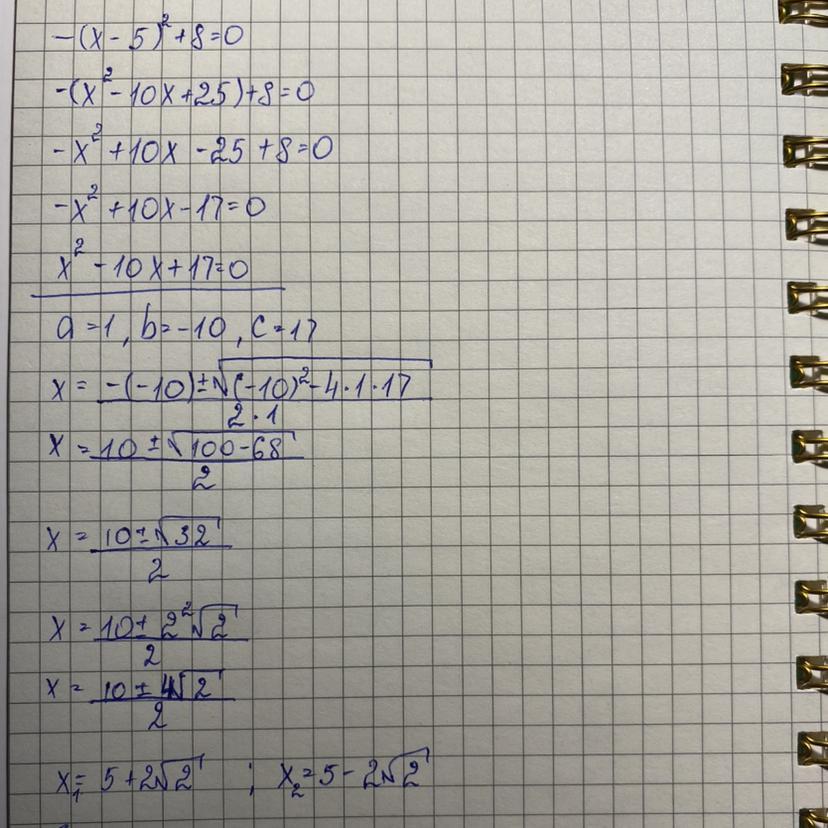 -(x-5)²+8=0
-(x²-10x+25)+8=0
-x²+10x-25+8=0
-x²+10x-17=0
x²-10x+17=0
a=1, b=-10, c=17
x = (-(-10)±√((-10)²-4·1·17))/(2·1)
x = (10±√(100-68))/2
x = (10±√32)/2
x = (10±2²√2)/2
x = (10±4√2)/2
x₁=5+2√2 ; x₂=5-2√2